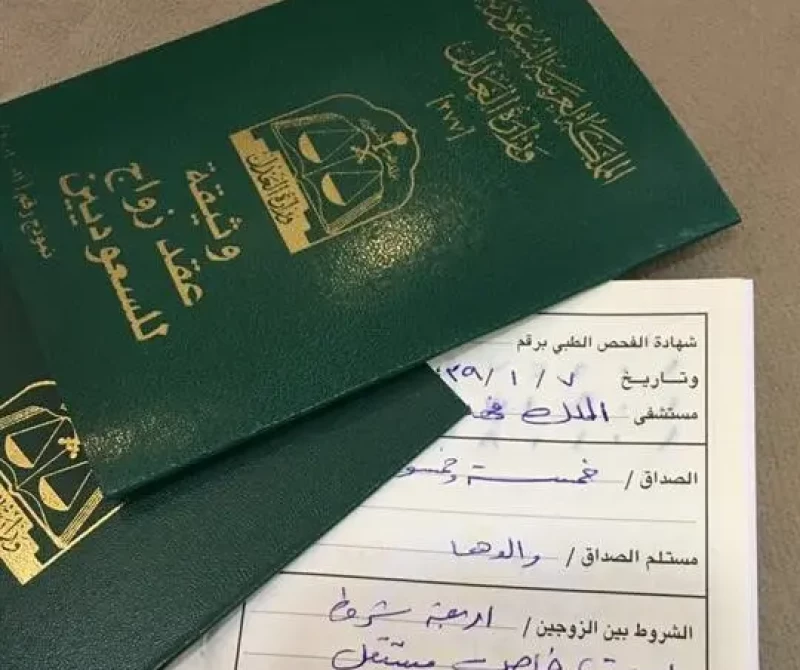 المملكة العربية السعودية
وزارة العدل
[٢٧٧]
وزارة العدل
وثيقة
عقد زواج
للسعوديين
نموذج رقم
شهادة الفحص الطبي برقم
وتاريخ ٧ / ١ / ٣٩
مستشفى الملك
الصداق / خمسة
مستلم الصداق / والدها
الشروط بين الزوجين / اربعة شروط
مستقل